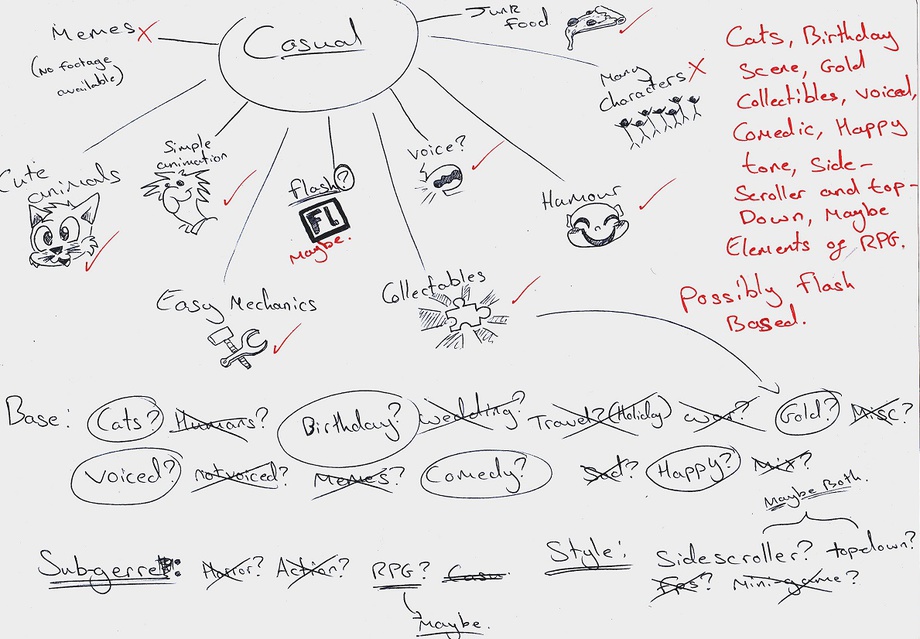 Casual
Memes
(No footage
available)
Junk
food
Many
characters
Cute
animals
Simple
animation
flash?
FL
Maybe.
Voice?
Humour
Easy Mechanics
Collectables
Cats, Birthday
Scene, Gold
Collectibles, Voiced,
Comedic, Happy
tone, Side-
Scroller and top-
Down, Maybe
Elements of RPG.
Possibly flash
Based.
Base: Cats? Humans? Birthday? wedding? Travel? (Holiday) war? Gold? Misc?
Voiced? not voiced? Memes? Comedy? Sad? Happy? Mix?
Maybe Both.
Sub-genre: Horror? Action? RPG? Casu
Maybe.
Style: Sidescroller? topdown?
Fps? Mini-game?